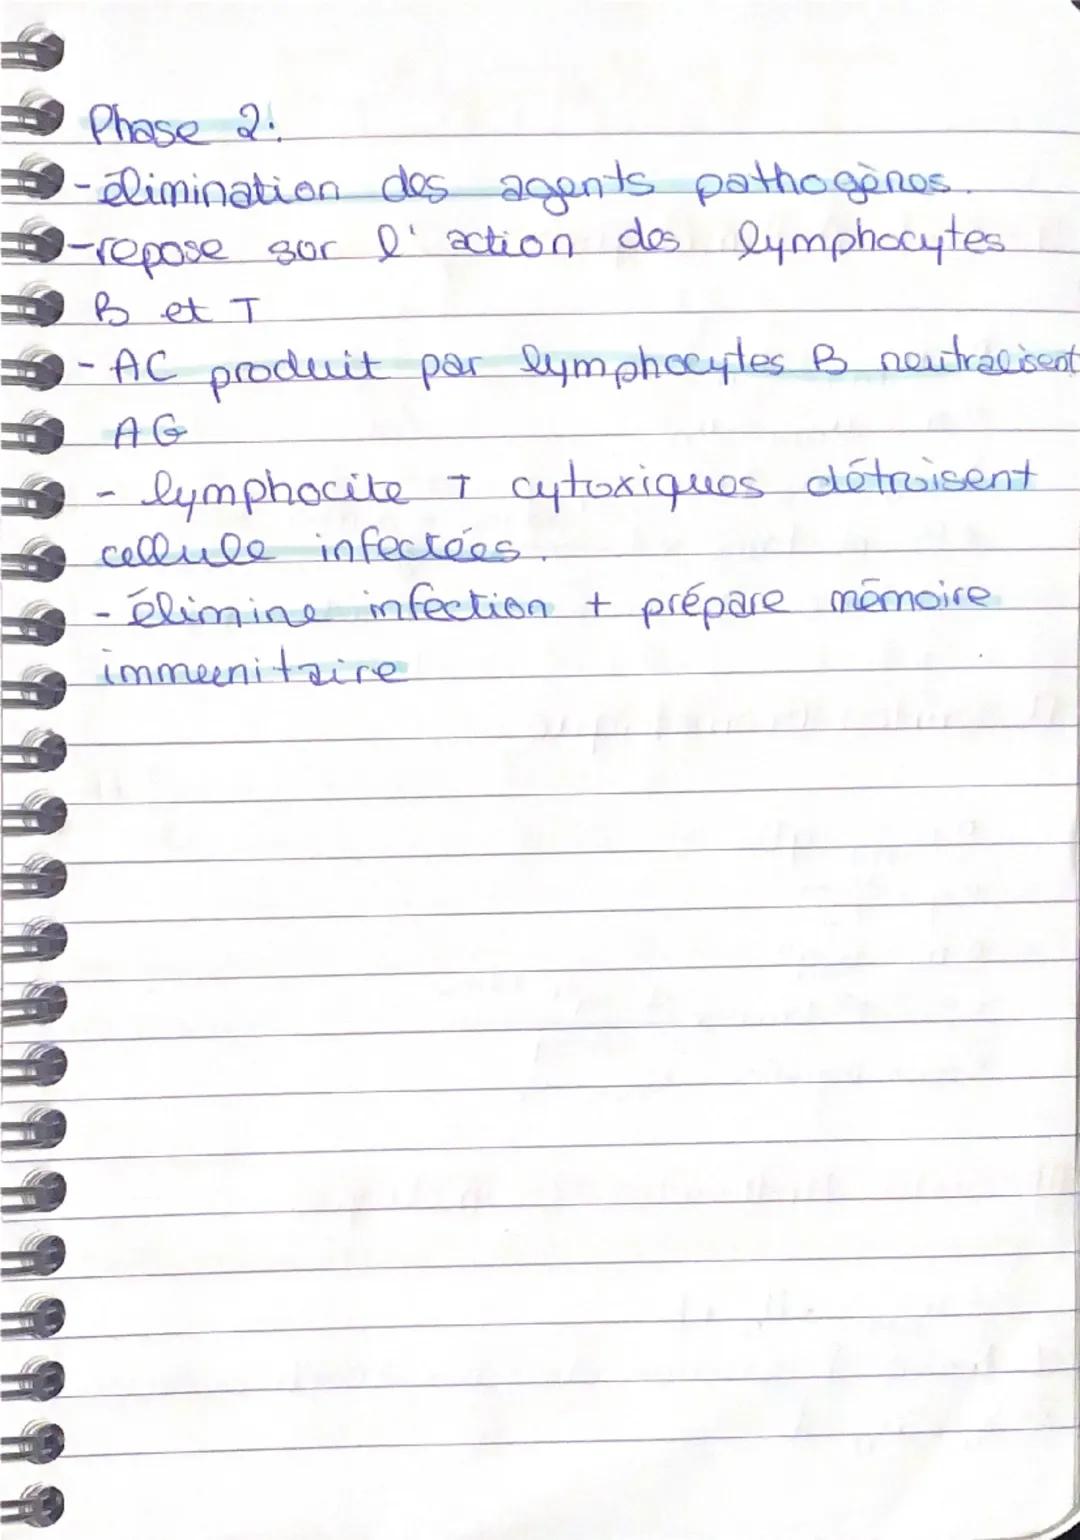 Phase 2:
- élimination des agents pathogènes.
- repose sur l'action des lymphocytes
B et T
- AC produit par lymphocytes B neutralisent
AG
- lymphocite T cytoxiques détruisent
cellule infectées.
- élimine infection + prépare mémoire
immunitaire